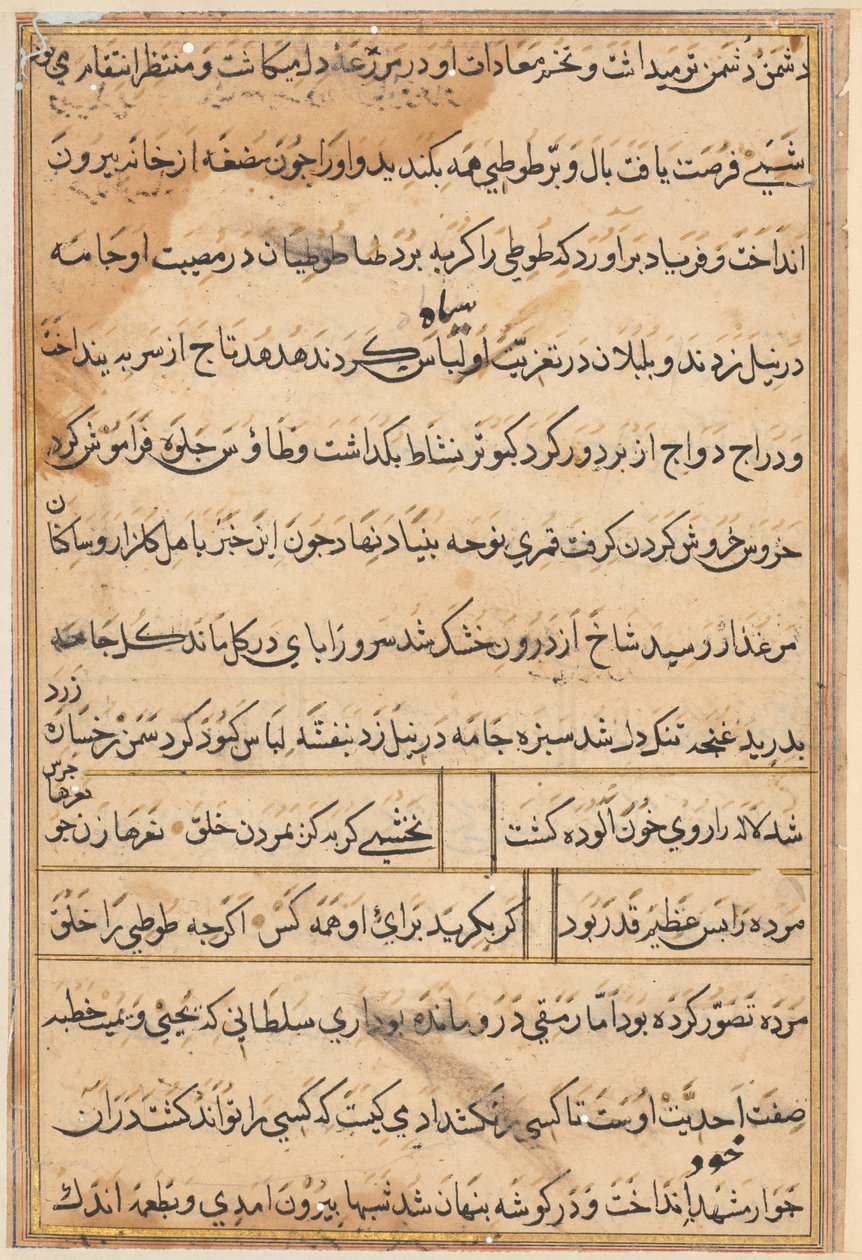 دشمن دشمن تو میداشت و تخم معادات او در مزرعهٔ دل میکاشت و منتظر انتقام می بود
شبی فرصت یافت بال و پر طوطی همه بکندید و او را چون مضغه از خانه بیرون
انداخت و فریاد براورد که طوطی را کربه برد طوطیان در مصیبت او جامه
سیاه
در نیل زدند و بلبلان در تعزیت او لباس کردند هدهد تاج از سر بینداخت
و دراج دواج از بر دور کرد کبوتر نشاط بکذاشت و طاؤس جلوه فراموش کرد
خروس خروش کردن کرفت قمری نوحه بنیاد نهاد چون این خبر باهل کلزار و ساکنان
مرغذار رسید شاخ از درون خشک شد سرو را پای در کل ماند کل جامه
بدرید غنچه تنک دل شد سبزه جامه در نیل زد بنفشه لباس کبود کرد سمن رخساره زرد
شد لاله را روی خون آلوده کشت نخشبی کریه کن بمردن خلق نعرها زن چو جرس
نعرها
مرده را بس عظیم قدر بود کر بکرید برای او همه کس اکرچه طوطی را خلق
مرده تصور کرده بود اما رمقی درو مانده بود اری سلطانی که یحیی و یمیت خطبه
صفت احدیت اوست تا کسی را نکشد ادمی کیست که کسی را تواند کشت در ان
خود
جوار مشهد انداخت و در کوشه پنهان شد شبها بیرون امدی و بطعمه اندک